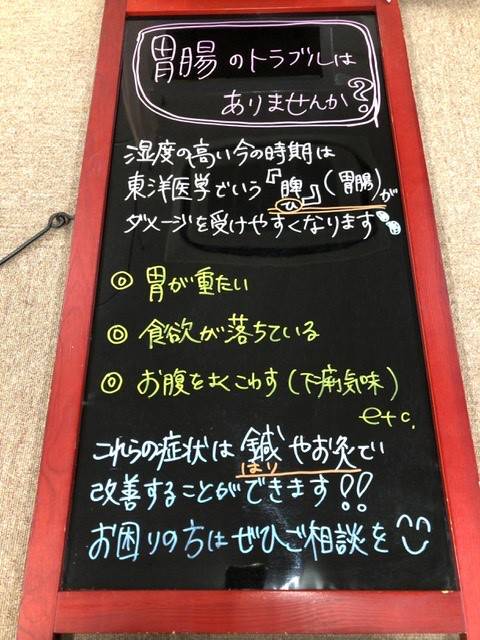 胃腸のトラブルは
ありませんか?
湿度の高い今の時期は
東洋医学でいう『脾』(胃腸)が
ひ
ダメージを受けやすくなります
◎ 胃が重たい
◎ 食欲が落ちている
◎ お腹をよくこわす(下痢気味)
etc.
これらの症状は鍼やお灸で
はり
改善することができます!!
お困りの方はぜひご相談を